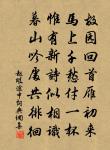 故園回首雁初來
馬上千愁付一杯
惟有新詩似相識
暮山吟處共徘徊
趙嘏途中詞典網集